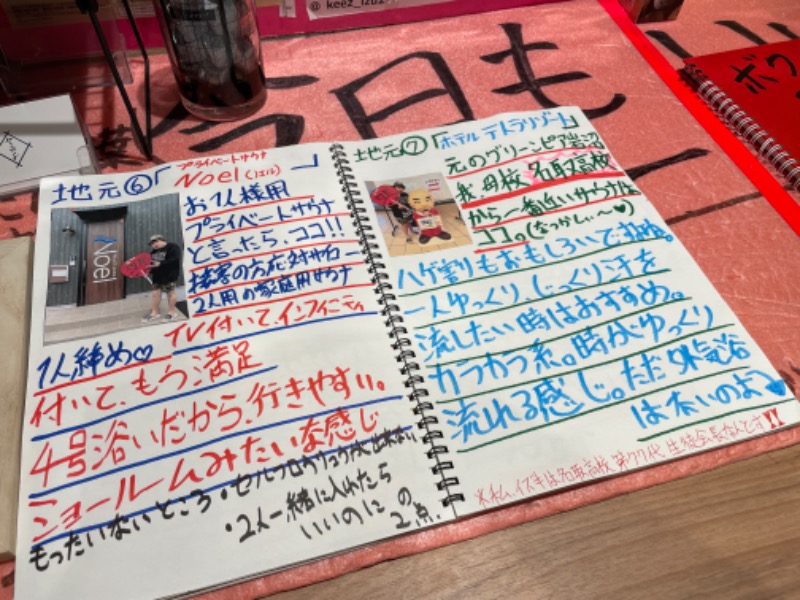 @ keez_izu2
今日もい
ボク
地元⑥「プライベートサウナ
Noel(ノエル)」
お1人様用
プライベートサウナ
と言ったら、ココ!!
接客の方応対サイコー
2人用の家庭用サウナ
TV付いて、インフィニティ
1人締め♡
付いて、もう満足
4号沿いだから、行きやすい。
ショールームみたいな感じ
もったいないところ・セルフロウリュウが出来ない
・2人一緒に入れたら
いいのに の
2点.
Noel
地元⑦「ホテルテトラリゾート」
元のグリーンピア岩沼
我母校、名取高校
から一番近いサウナは
ココの(なつかしぃ〜♥)
ハゲ割りもおもしろいですね。
一人ゆっくり、じっくり汗を
流したい時はおすすめ。
カラカラ系。時がゆっくり
流れる感じ。ただ外気浴
は ないのよ
※私、イズキは名取高校 第77代 生徒会長なんです!!